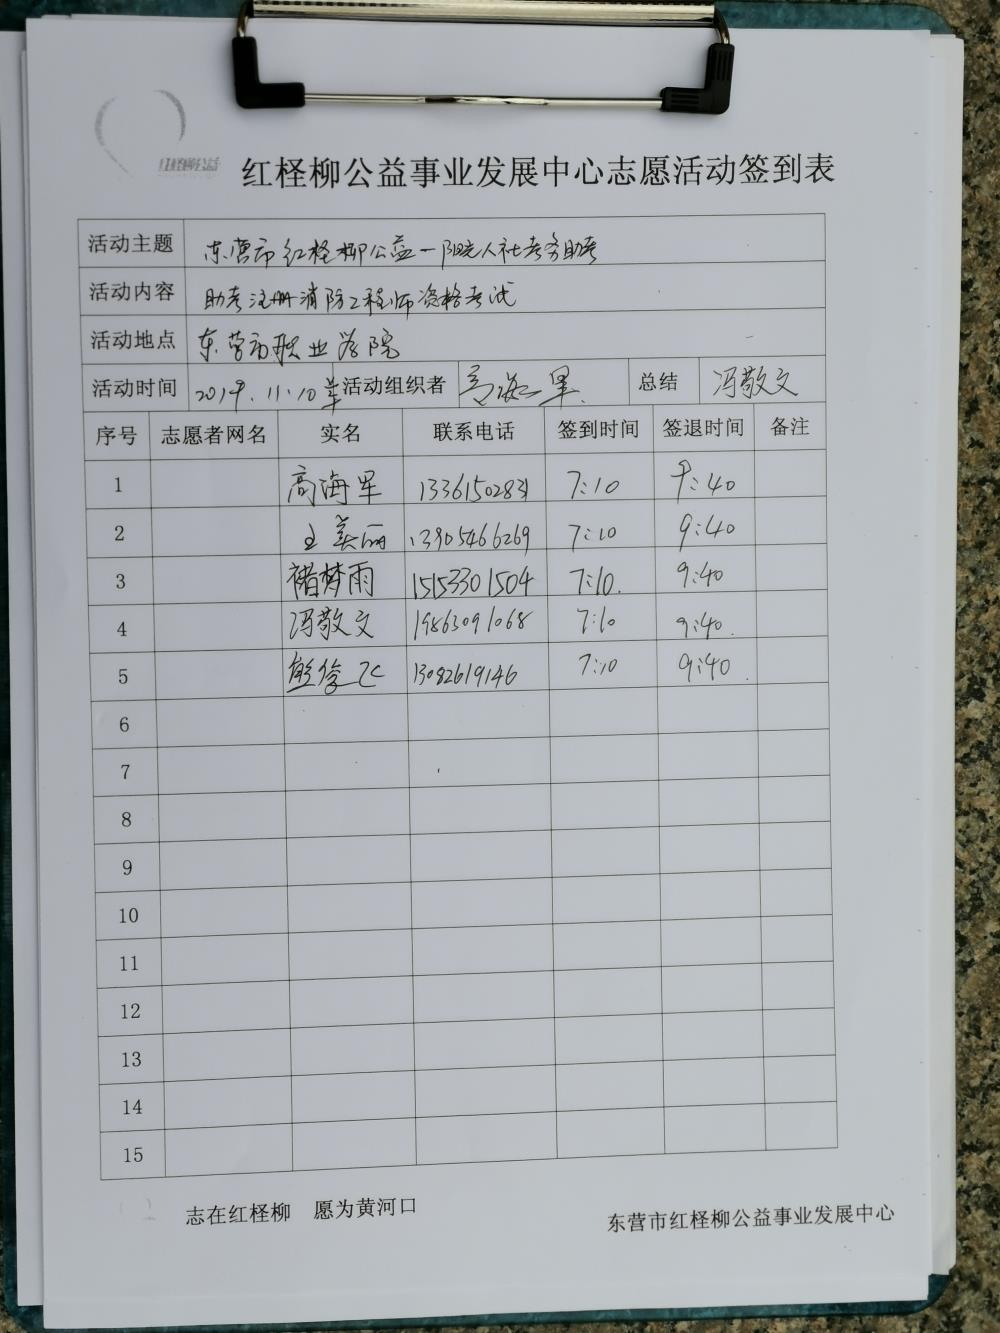 红柽柳公益
红柽柳公益事业发展中心志愿活动签到表
活动主题 东营市红柽柳公益一阳光人社考务助考
活动内容 助考注册消防工程师资格考试
活动地点 东营市职业学院
活动时间 2019.11.10 活动组织者 高海军 总结 冯敬文
序号 志愿者网名 实名 联系电话 签到时间 签退时间 备注
1 高海军 7:10 9:40
2 王美丽 13905466269 7:10 9:40
3 褚梦雨 15153301504 7:10. 9:40
4 冯敬文 19863091068 7:10 9:40.
5 13082619146 7:10 9:40.
6
7
8
9
10
11
12
13
14
15
志在红柽柳 愿为黄河口
东营市红柽柳公益事业发展中心